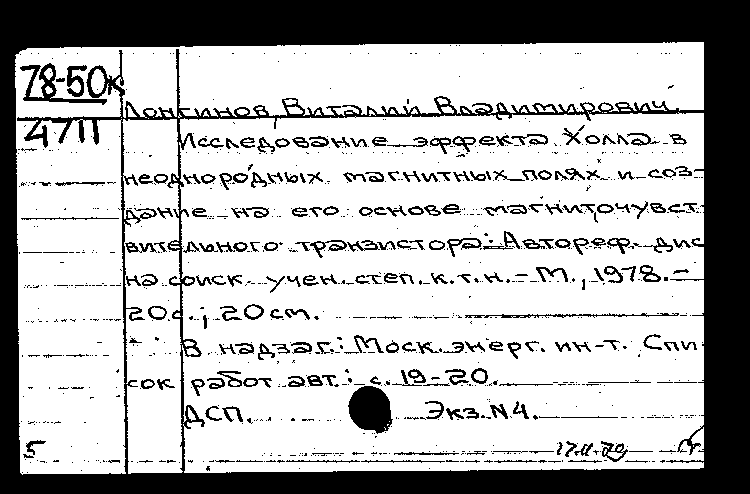 78-50к
4711
Лонгинов, Виталий Владимирович.
Исследование эффекта Холла в
неоднородных магнитных полях и соз-
дание на его основе магниточувст-
вительного транзистора: Автореф. дис
на соиск. учен. степ. к.т.н. – М., 1978. –
20 с.; 20 см.
В надзаг.: Моск. энерг. ин-т. Спи-
сок работ авт.: с. 19-20.
ДСП. Экз. N 4.
5